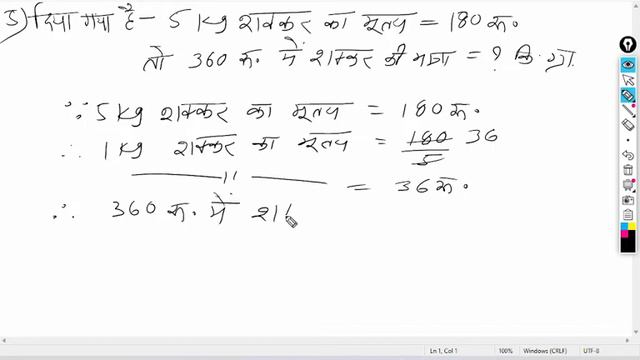 5) दिया गया है - 5 kg शक्कर का मूल्य = 180 रू.
तो 360 रू. में शक्कर की मात्रा = ? कि. ग्रा.
∵ 5 kg शक्कर का मूल्य = 180 रू.
∴ 1 kg शक्कर का मूल्य = 180/5 36
—— 11 —— = 36 रू.
∴ 360 रू. में श
Ln 1, Col 1 100% Windows (CRLF) UTF-8